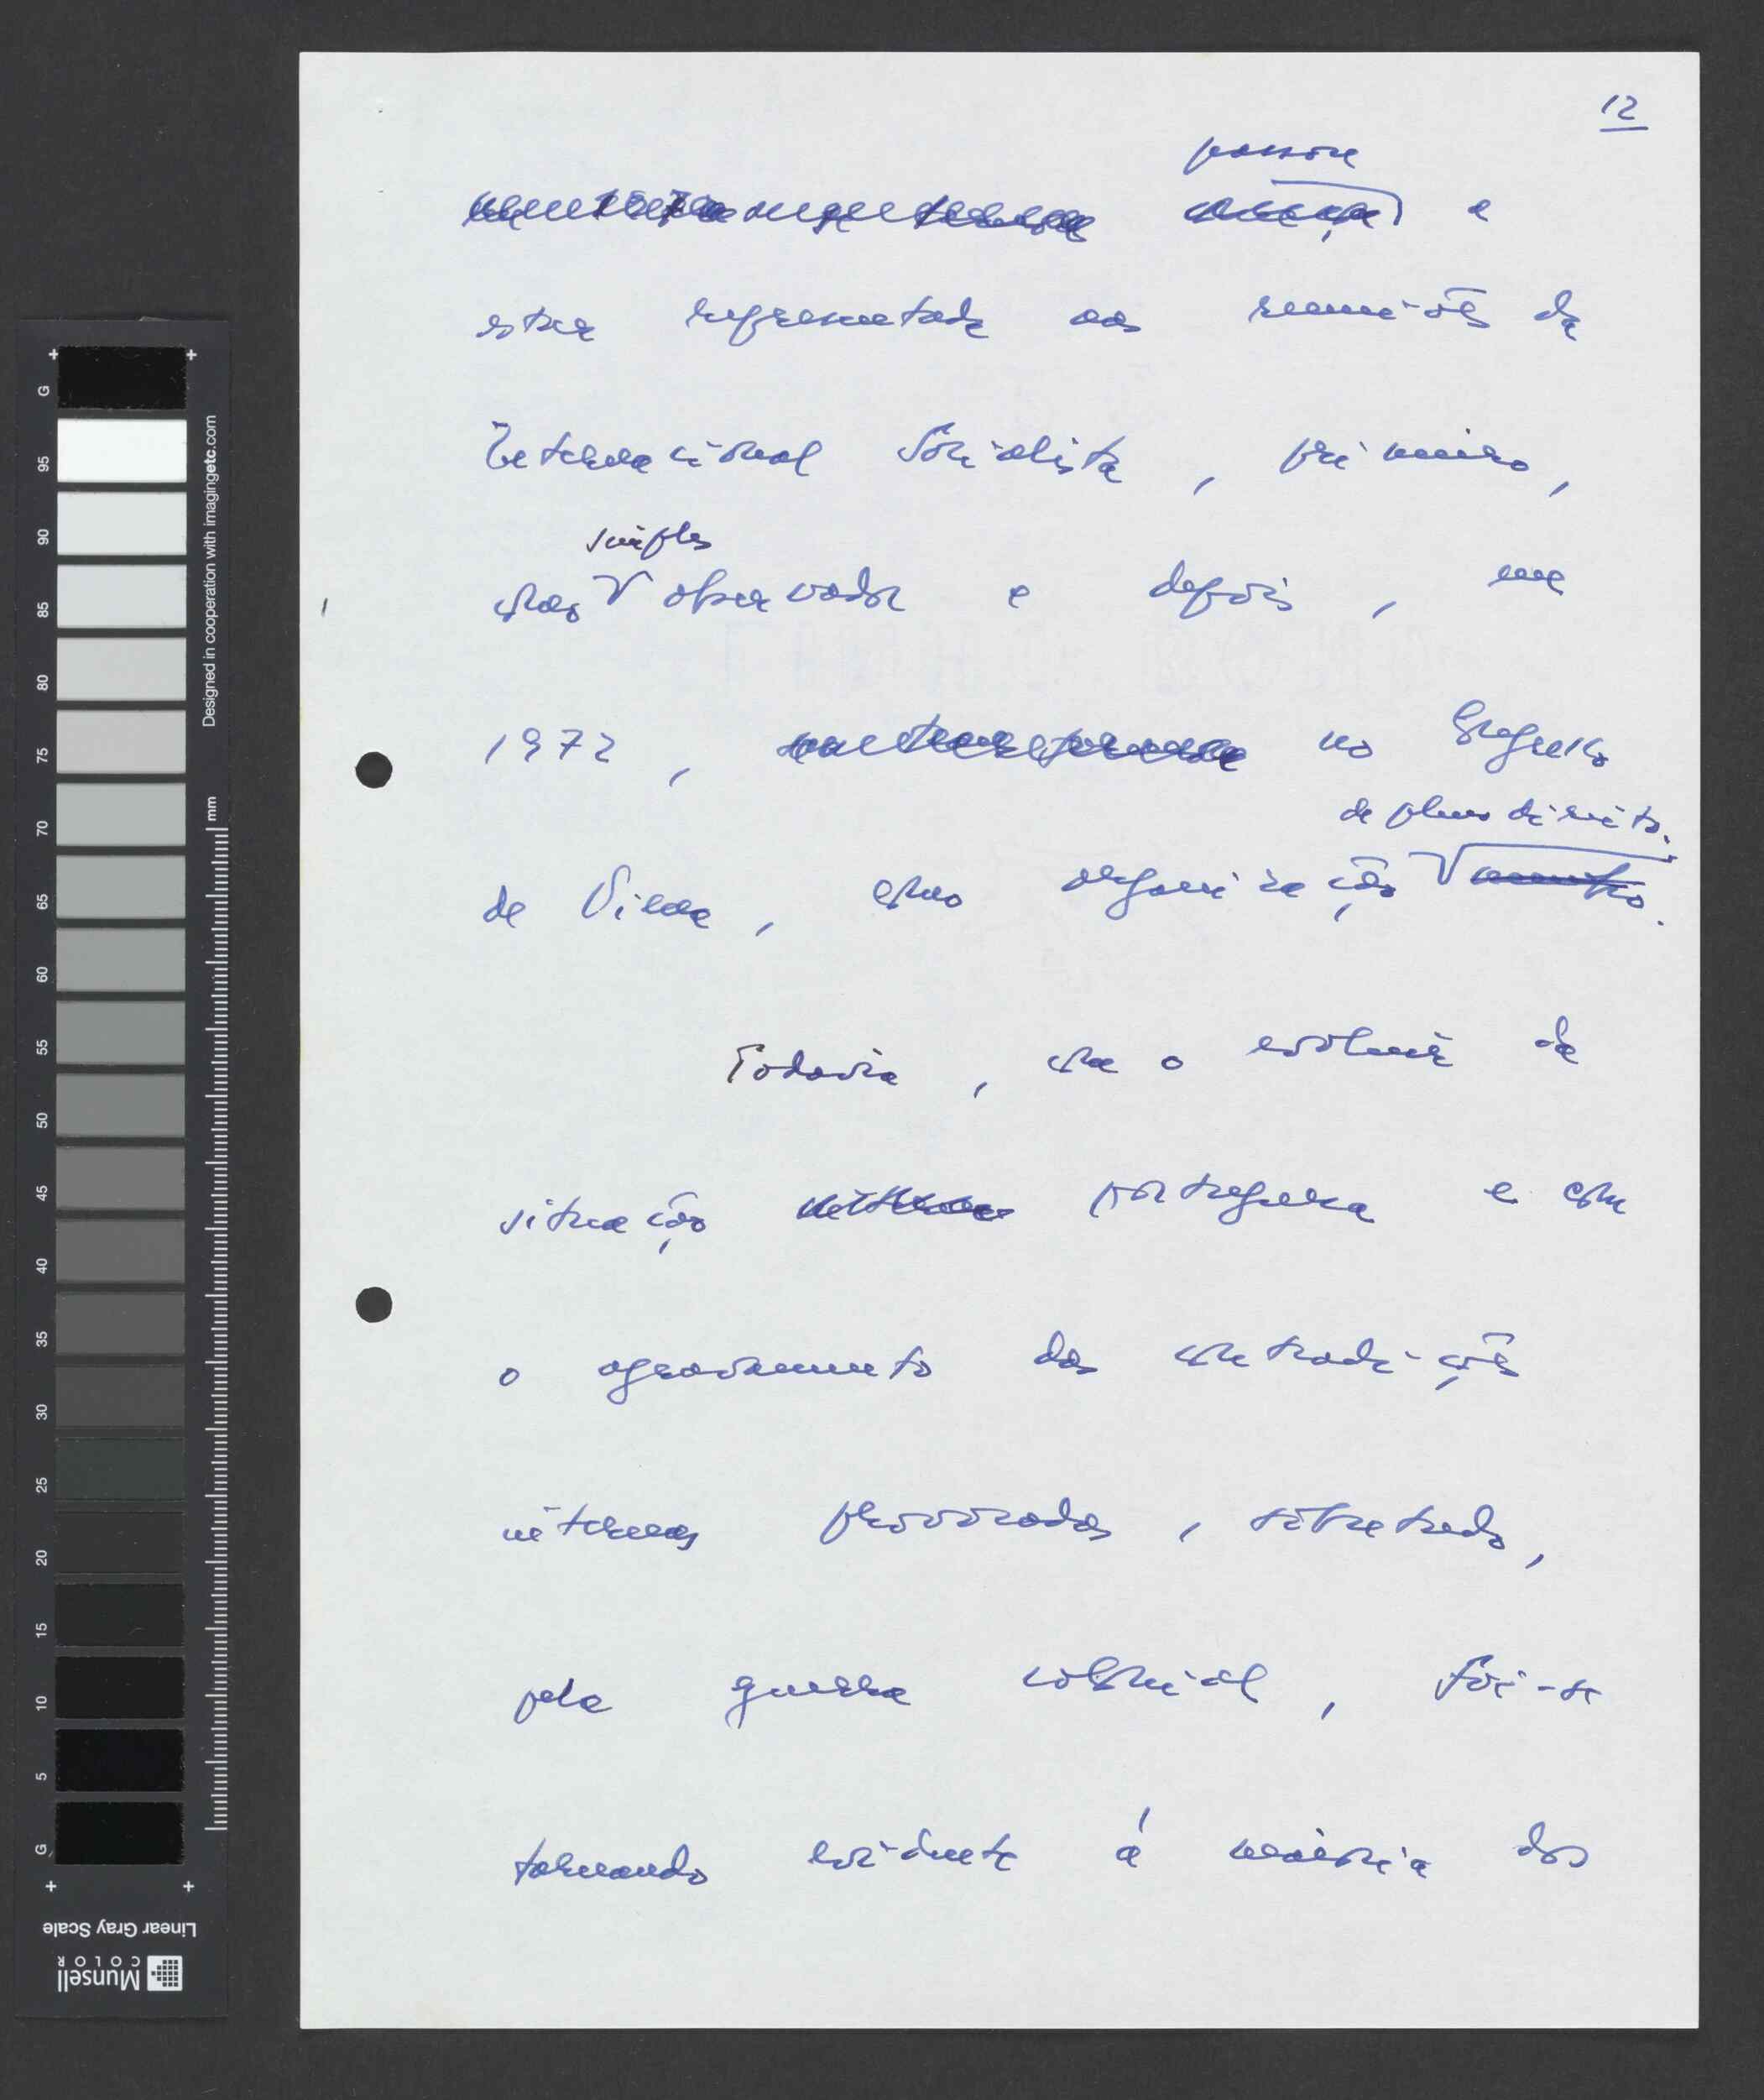 12
passou
a
estar representada nas reuniões da
Internacional Socialista, primeiro,
simples
como observador e depois, em
1972, no Congresso
de pleno direito.
de Viena, como organização membro.
Todavia, com o evoluir da
situação portuguesa e com
o agravamento das contradições
internas provocadas, sobretudo,
pela guerra colonial, foi-se
tornando evidente à maioria dos
G 95 90 85 80 75 70 65 60 55 50 45 40 35 30 25 20 15 10 5 G
Designed in cooperation with imagingetc.com
mm
Linear Gray Scale
Munsell
COLOR